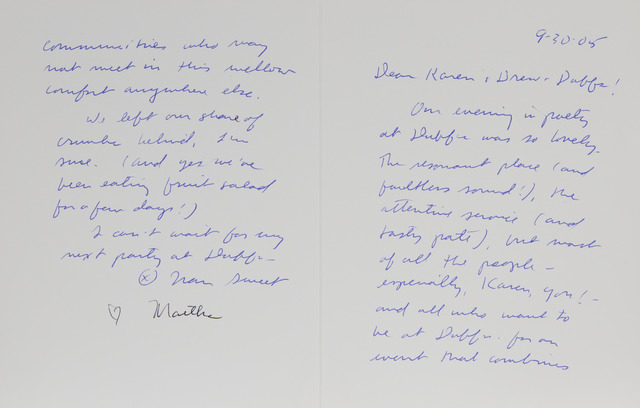 9-30-05
Dear Karen & Drew & Dubfu!
Our evening in poetry
at Dubfu was so lovely.
The resonant place (and
faultless sound!), the
attentive service (and
tasty pate), but most
of all the people -
especially, Karen, you! -
and all who want to
be at Dubfu for an
event that combines
communities who may
not meet in this mellow
comfort anywhere else.
We left our share of
crumbs behind, I'm
sure. (And yes we've
been eating fruit salad
for a few days!)
I can't wait for my
next party at Dubfu -
sweet
♡ Martha